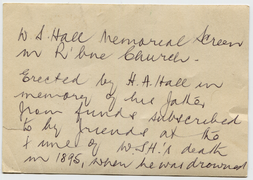 W S. Hall Memorial Screen
in R'bne Church.
Erected by H.A. Hall in
memory of his father,
from funds subscribed
to by friends at the
time of W.S.H.'s death
in 1895, when he was drowned